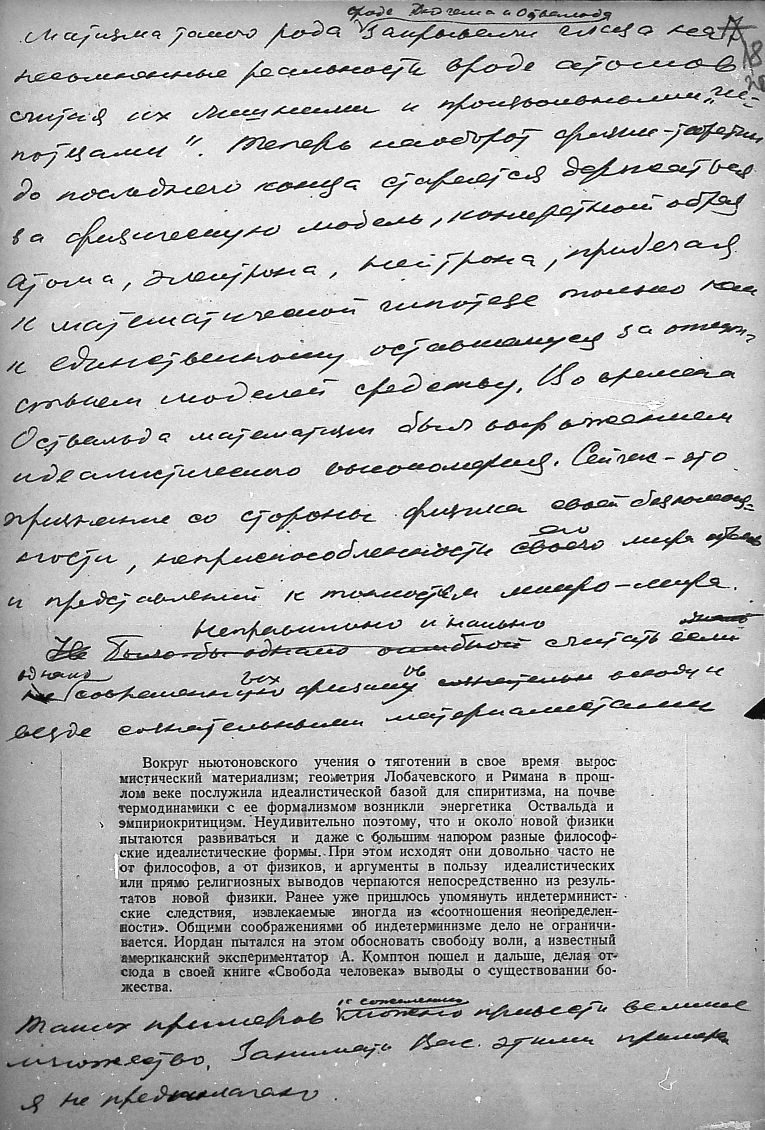 вроде Дюгема и Оствальда
матизма такого рода закрывали глаза на
несомненные реальности вроде атомов
считая их лишними и произвольными „ги-
потезами". Теперь наоборот физик-теоретик
до последнего конца старается держаться
за физическую модель, конкретный образ
атома, электрона, нейтрона, прибегая
к математической гипотезе только как
к единственному оставшемуся за отсут-
ствием моделей средству. Во времена
Оствальда математизм был выражением
идеалистического высокомерия. Сейчас – это
признание со стороны физика своей беспомощ-
ности, неприспособленности его своего мира
и представлений к тонкостям микро-мира.
Неправильно и наивно
Не было бы однако ошибкой считать если
однако
современных физиков сознательно всюду и
везде сознательными материалистами
Вокруг ньютоновского учения о тяготении в свое время вырос
мистический материализм; геометрия Лобачевского и Римана в прош-
лом веке послужила идеалистической базой для спиритизма, на почве
термодинамики с ее формализмом возникли энергетика Оствальда и
эмпириокритицизм. Неудивительно поэтому, что и около новой физики
пытаются развиваться и даже с большим напором разные философ-
ские идеалистические формы. При этом исходят они довольно часто не
от философов, а от физиков, и аргументы в пользу идеалистических
или прямо религиозных выводов черпаются непосредственно из резуль-
татов новой физики. Ранее уже пришлось упомянуть индетерминист-
ские следствия, извлекаемые иногда из «соотношения неопределен-
ности». Общими соображениями об индетерминизме дело не ограничи-
вается. Иордан пытался на этом обосновать свободу воли, а известный
американский экспериментатор А. Комптон пошел и дальше, делая от-
сюда в своей книге «Свобода человека» выводы о существовании бо-
жества.
к сожалению
Таких примеров можно привести великое
множество. Занимать Вас этими примерами
я не предполагаю.